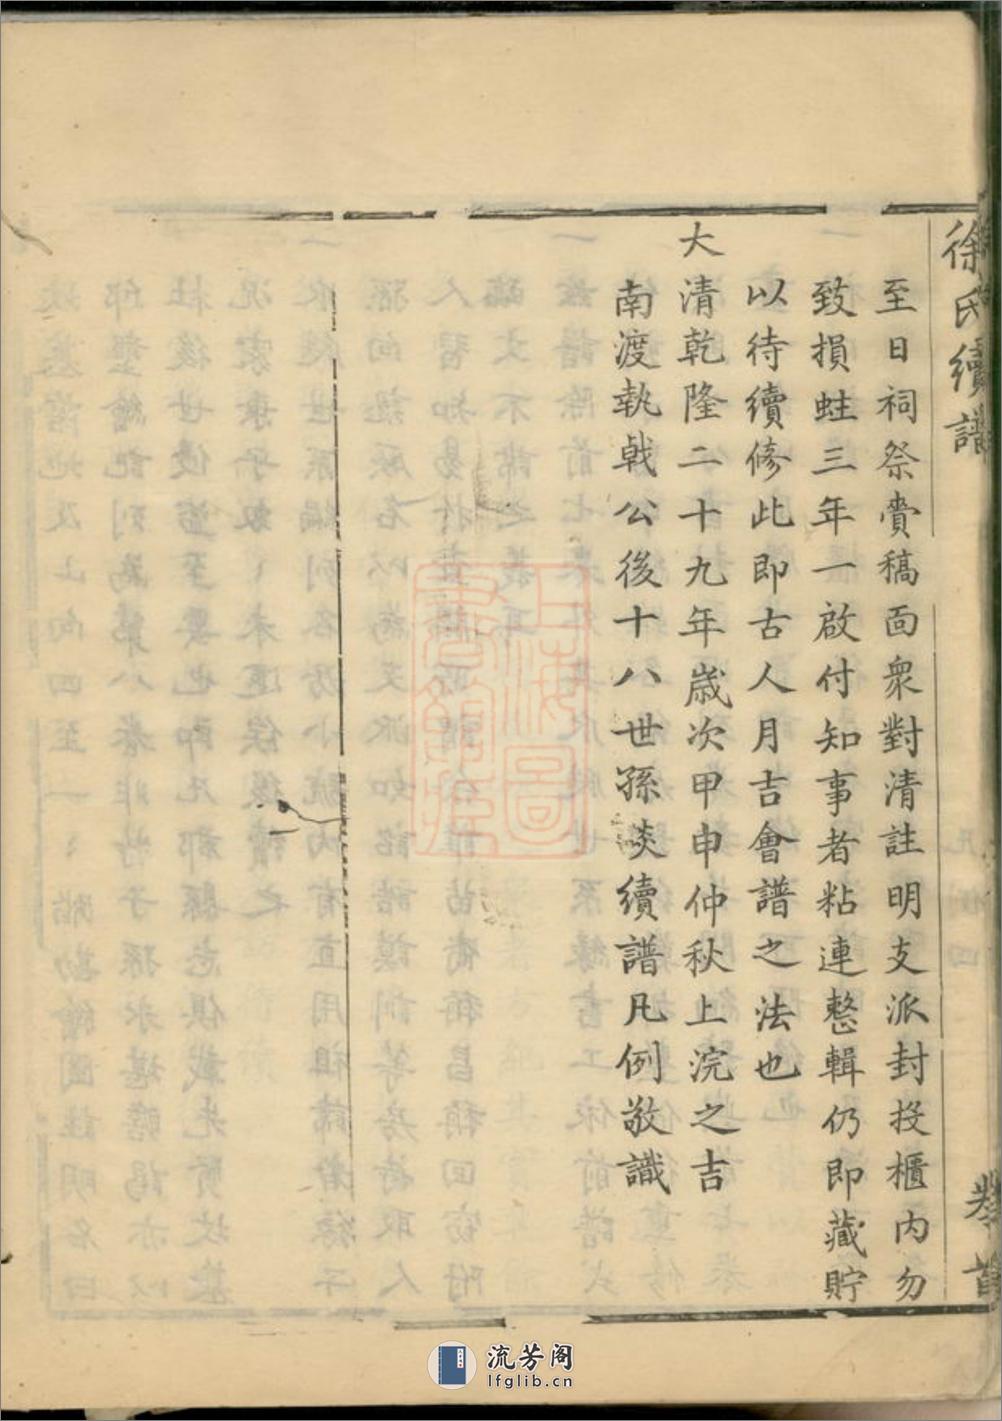 徐氏續譜
卷首
至日祠祭賫稿面衆對清註明支派封投櫃內勿
致損蛀三年一啟付知事者粘連整輯仍即藏貯
以待續修此即古人月吉會譜之法也
大清乾隆二十九年歲次甲申仲秋上浣之吉
南渡執戟公後十八世孫淡續譜凡例敬識
上海圖書館藏
流芳阁
lfglib.cn